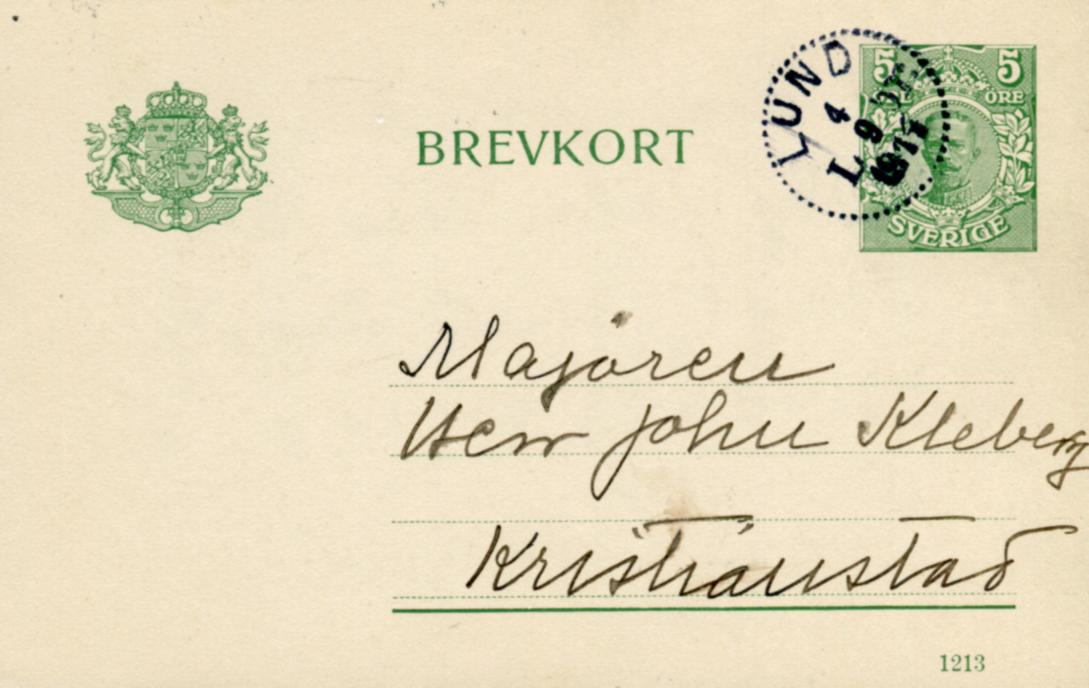 BREVKORT
5 5
ÖRE
SVERIGE
LUND
4
9
L
Majoren
Herr John Kleberg
Kristianstad
1213